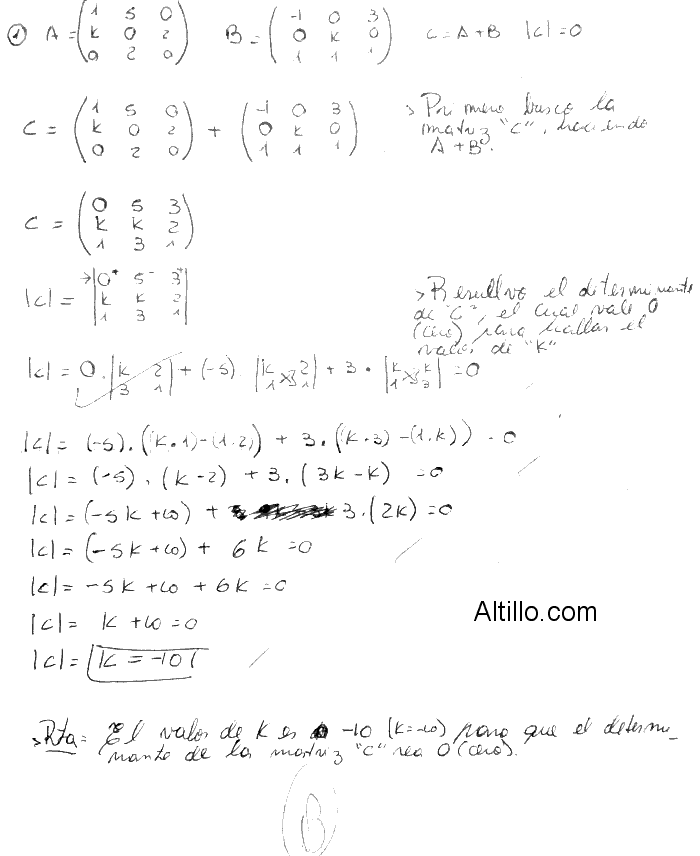 ① A = (1 5 0 / k 0 2 / 0 2 0) B = (-1 0 3 / 0 k 0 / 1 1 1) C = A+B |C| = 0
C = (1 5 0 / k 0 2 / 0 2 0) + (-1 0 3 / 0 k 0 / 1 1 1)
> Primero busco la
matriz "C", haciendo
A+B.
C = (0 5 3 / k k 2 / 1 3 1)
|C| = |0⁺ 5⁻ 3⁺ / k k 2 / 1 3 1|
> Resuelvo el determinante
de "C", el cual vale 0
(cero) para hallar el
valor de "K"
|C| = 0 . |k 2 / 3 1| + (-5) . |k 2 / 1 1| + 3 . |k k / 1 3| = 0
|C| = (-5) . ((k.1) - (1.2)) + 3 . ((k.3) - (1.k)) = 0
|C| = (-5) . (k-2) + 3 . (3k-k) = 0
|C| = (-5k+10) + 3.(2k) = 0
|C| = (-5k+10) + 6k = 0
|C| = -5k+10+6k = 0
|C| = k+10 = 0
|C| = k = -10
Altillo.com
> Rta = El valor de k es -10 (k=-10) para que el determi_
nante de la matriz "C" sea 0 (cero).
B